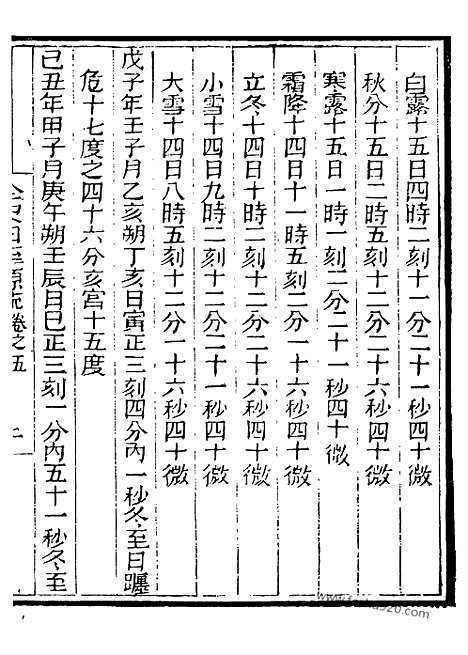 白露十五日四時二刻十一分二十一秒四十微
秋分十五日二時五刻十二分二十六秒四十微
寒露十五日一時一刻二分二十一秒四十微
霜降十四日十一時五刻二分一十六秒四十微
立冬十四日十時二刻十二分二十六秒四十微
小雪十四日九時二刻十二分二十一秒四十微
大雪十四日八時五刻十二分一十六秒四十微
戊子年壬子月乙亥朔丁亥日寅正三刻四分內一秒冬至日躔
危十七度之四十六分亥宮十五度
己丑年甲子月庚午朔壬辰日巳正三刻一分內五十一秒冬至
卷之五
二